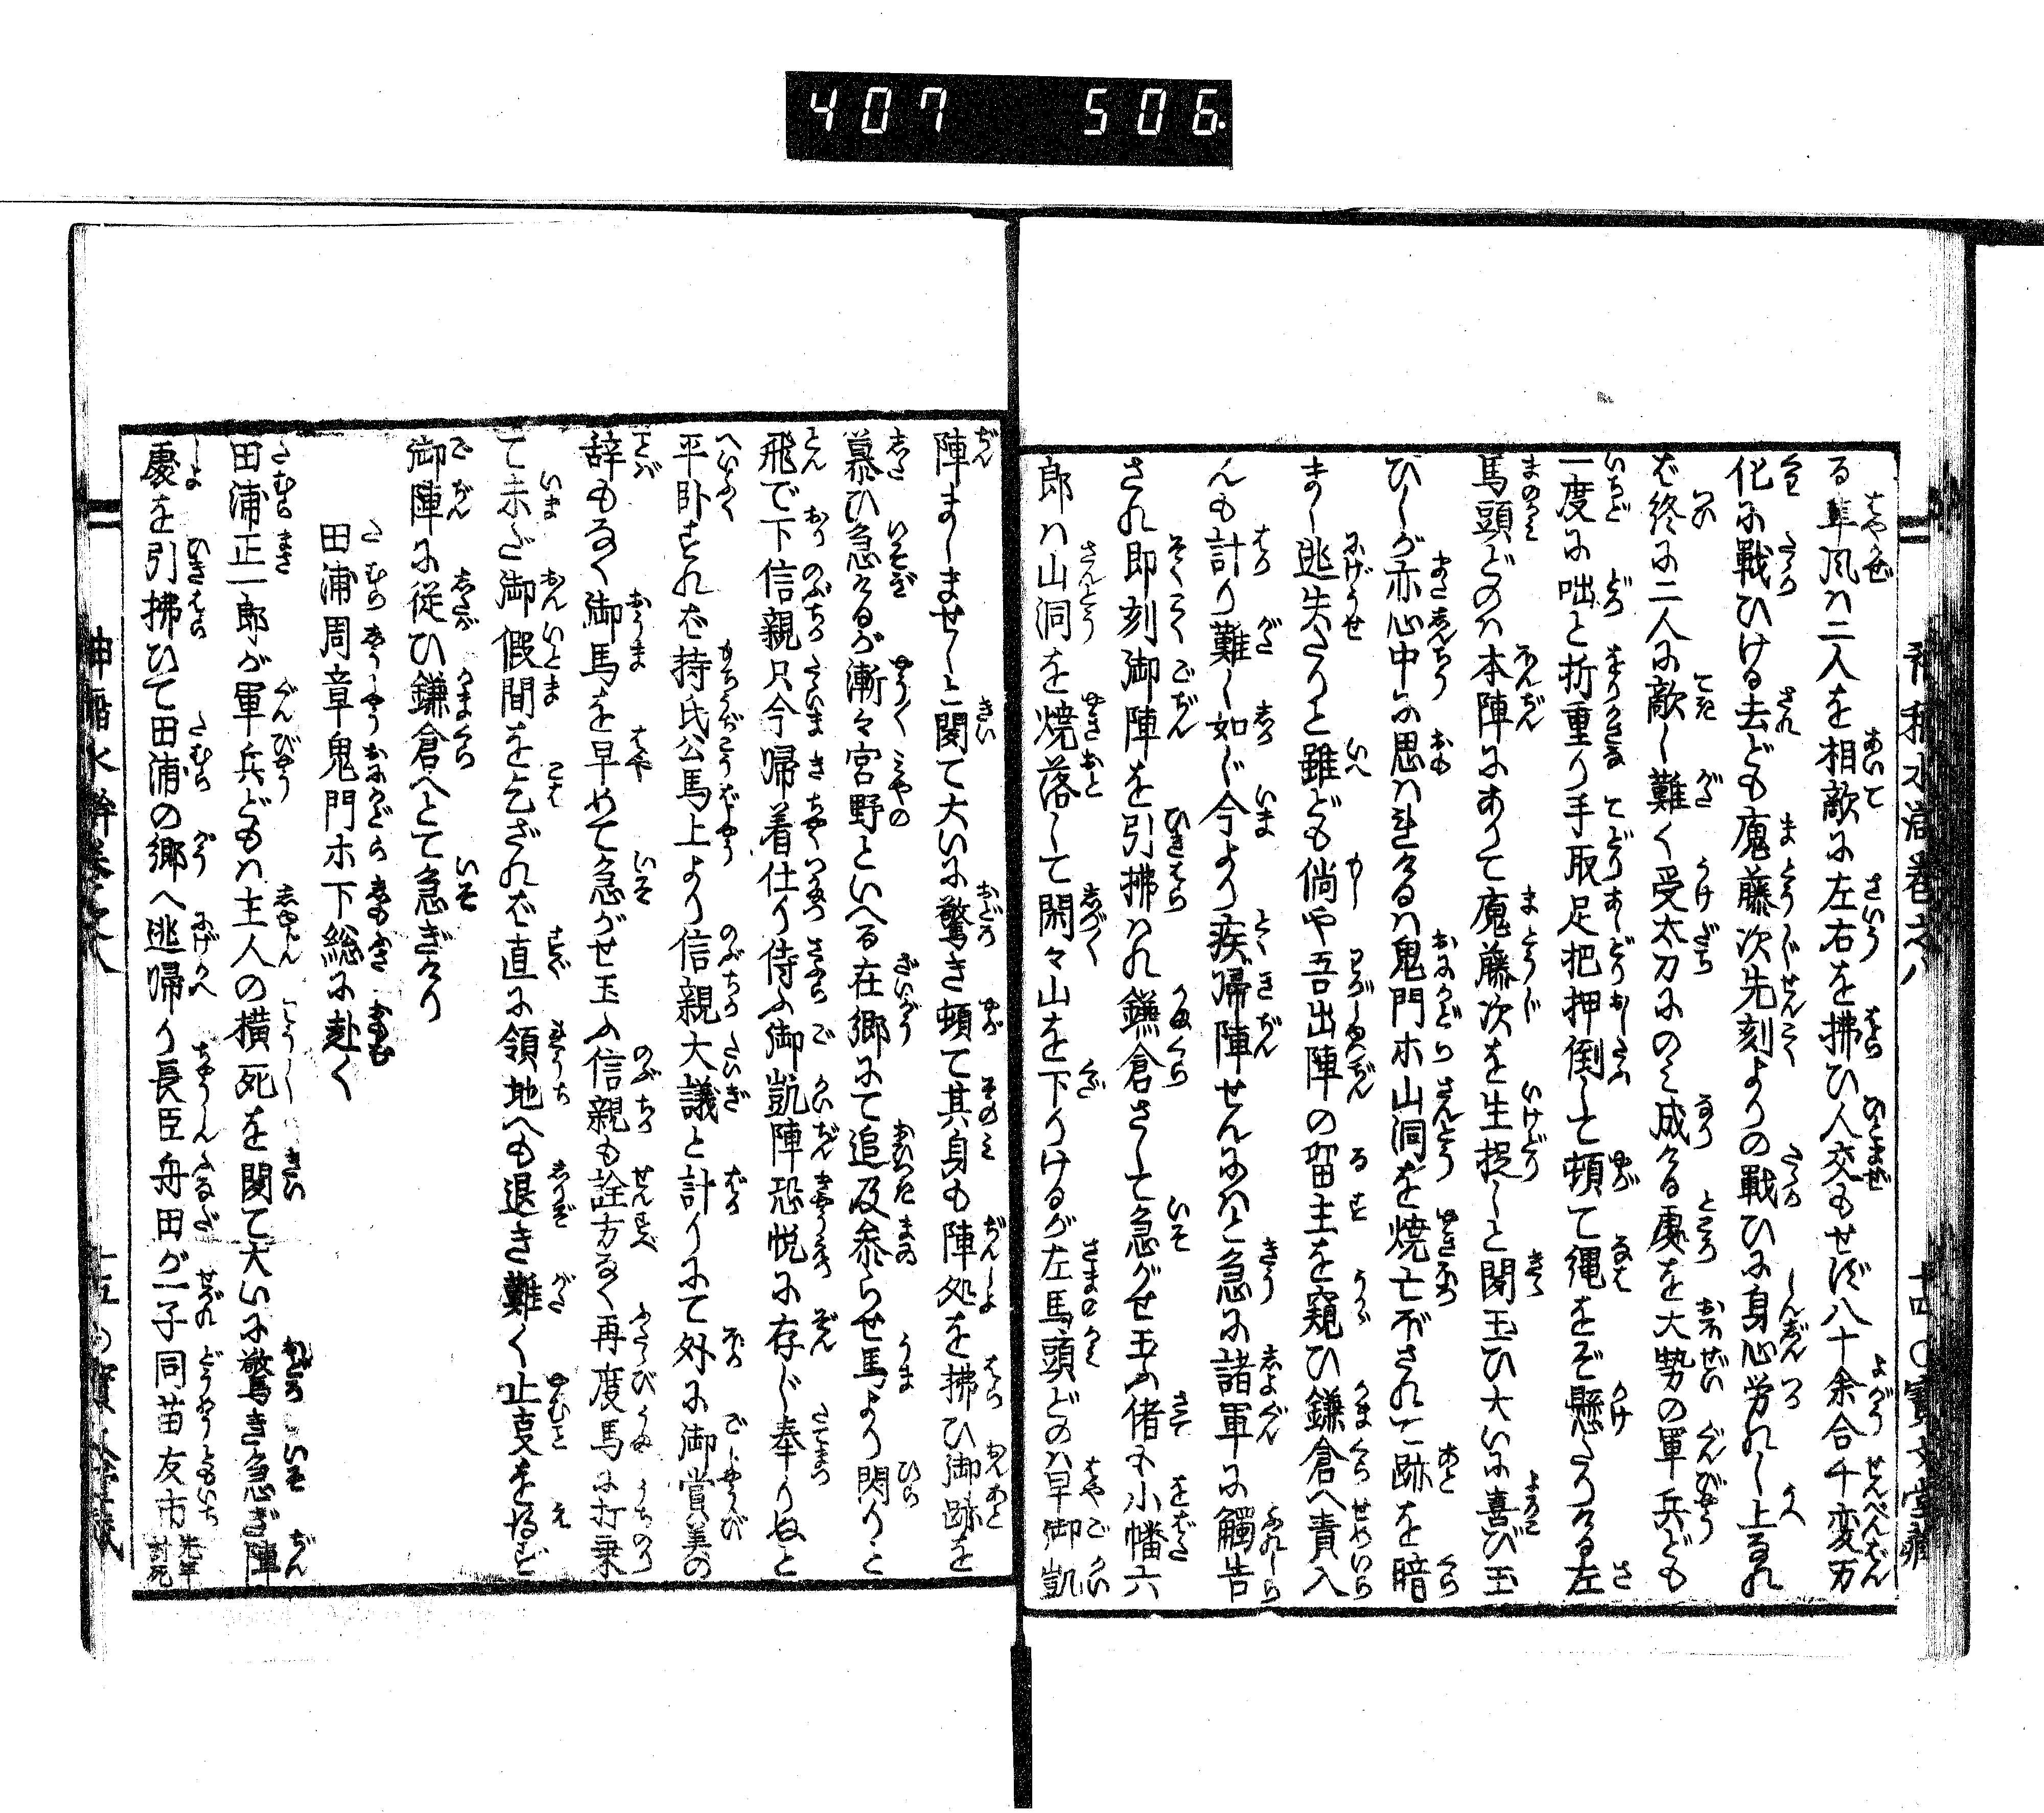 407 506
る隼風ハ二人を相敵に左右を払ひ人交もせず八十余合千変万
化に戦ひける去ども魔藤次先刻よりの戦ひに身心労れし上なれ
ば終に二人に敵し難く受太刀にのミ成ける処を大勢の軍兵ども
一度に咄と折重り手取足把押倒して頓て縄をぞ懸たりける左
馬頭どのハ本陣にありて魔藤次を生捉しと聞玉ひ大いに喜び玉
ひしが亦心中に思ハれけるハ鬼門ホ山洞を焼亡ぼされて跡を暗
まし逃失たりと雖ども倘や吾出陣の留主を窺ひ鎌倉へ責入
んも計り難し如じ今より疾帰陣せんにハと急に諸軍に觸告
され即刻御陣を引拂ハれ鎌倉さして急がせ玉ふ偖も小幡六
郎ハ山洞を焼落して閑々山を下りけるが左馬頭どのハ早御凱
陣ましませしと聞て大いに驚き頓て其身も陣処を拂ひ御跡を
慕ひ急ぎけるが漸々宮野といへる在郷にて追及参らせ馬より閃りと
飛で下信親只今帰着仕り侍ふ御凱陣恐悦に存じ奉りぬと
平臥すれば持氏公馬上より信親大議と計りにて外に御賞美の
辞もなく御馬を早めて急がせ玉ふ信親も詮方なく再度馬に打乗
て未だ御假間を乞ざれば直に領地へも退き難く止夏を得ず
御陣に従ひ鎌倉へとて急ぎけり
田浦周章鬼門ホ下総に赴く
田浦正一郎が軍兵どもハ主人の横死を聞て大いに驚き急ぎ陣
処を引拂ひて田浦の郷へ逃帰り長臣舟田が一子同苗友市先年討死